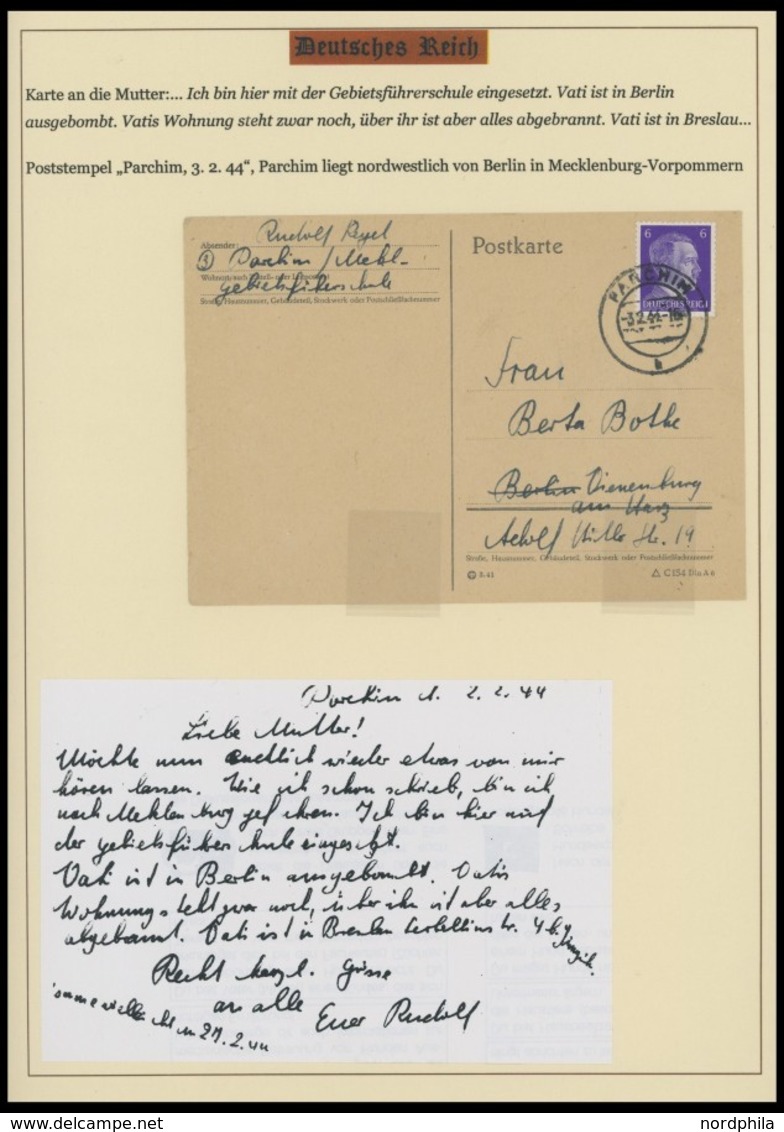 Deutsches Reich
Karte an die Mutter:... Ich bin hier mit der Gebietsführerschule eingesetzt. Vati ist in Berlin
ausgebombt. Vatis Wohnung steht zwar noch, über ihr ist aber alles abgebrannt. Vati ist in Breslau...
Poststempel „Parchim, 3. 2. 44“, Parchim liegt nordwestlich von Berlin in Mecklenburg-Vorpommern
Absender: Rudolf
Parchim / Meckl-
Gebietsführerschule
Straße, Hausnummer, Gebäudeteil, Stockwerk oder Postschließfachnummer
Postkarte
6 6
DEUTSCHES REICH
PARCHIM
-3.2.44-
b
Frau
Berta Bothe
Berlin Vienenburg
am Harz
Adolf Hitler Str. 19
Straße, Hausnummer, Gebäudeteil, Stockwerk oder Postschließfachnummer
C 154 Din A 6
Parchim d. 2.2.44
Liebe Mutter!
Möchte nun endlich wieder etwas von mir
hören lassen. Wie ich schon schrieb, bin ich
nach Mecklenburg gefahren. Ich bin hier auf
der Gebietsführerschule eingesetzt.
Vati ist in Berlin ausgebombt. Vatis
Wohnung steht zwar noch, über ihr ist aber alles
abgebrannt. Vati ist in Breslau str. 4 b.
Recht herzl. Grüsse
an alle
Euer Rudolf
komme vielleicht am 27.2.44
nordphila